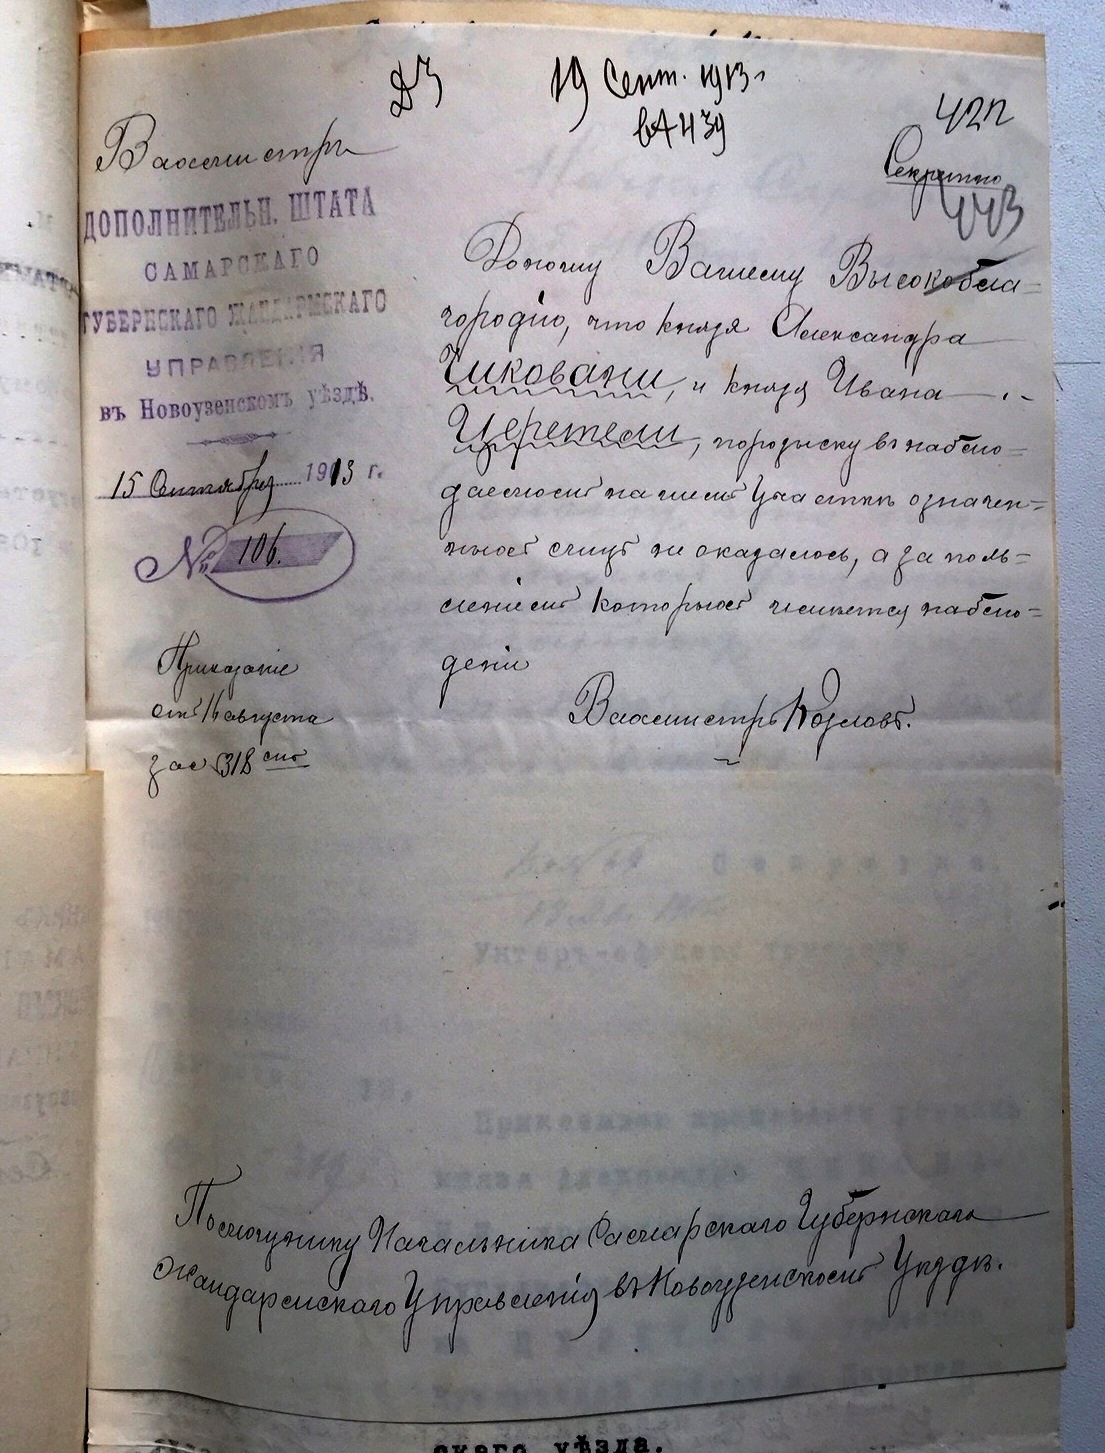 19 Сент. 1913 г
вх 439
422
Секретно
443
Вахмистръ
ДОПОЛНИТЕЛЬН. ШТАТА
САМАРСКАГО
ГУБЕРНСКАГО ЖАНДАРМСКАГО
УПРАВЛЕНІЯ
въ Новоузенскомъ уѣздѣ.
15 Сентября 1913 г.
№ 106.
Приказаніе
отъ 16 августа
за № 318
Доношу Вашему Высокобла=
городію, что князя Александра
Чиковани, и князя Ивана
Церетели, по розыску въ наблю=
даемомъ намъ Участкѣ означен=
ныхъ лицъ не оказалось, а за появ=
леніемъ которыхъ имѣется наблю=
деніе
Вахмистръ Козловъ.
Помощнику Начальника Самарскаго Губернскаго
Жандармскаго Управленія въ Новоузенскомъ Уѣздѣ.
скаго уѣзда.